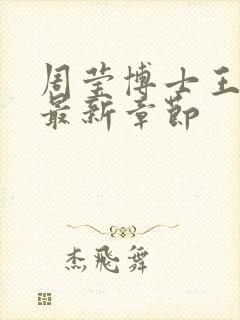 周莹博士王
最新章节
杰飛舞